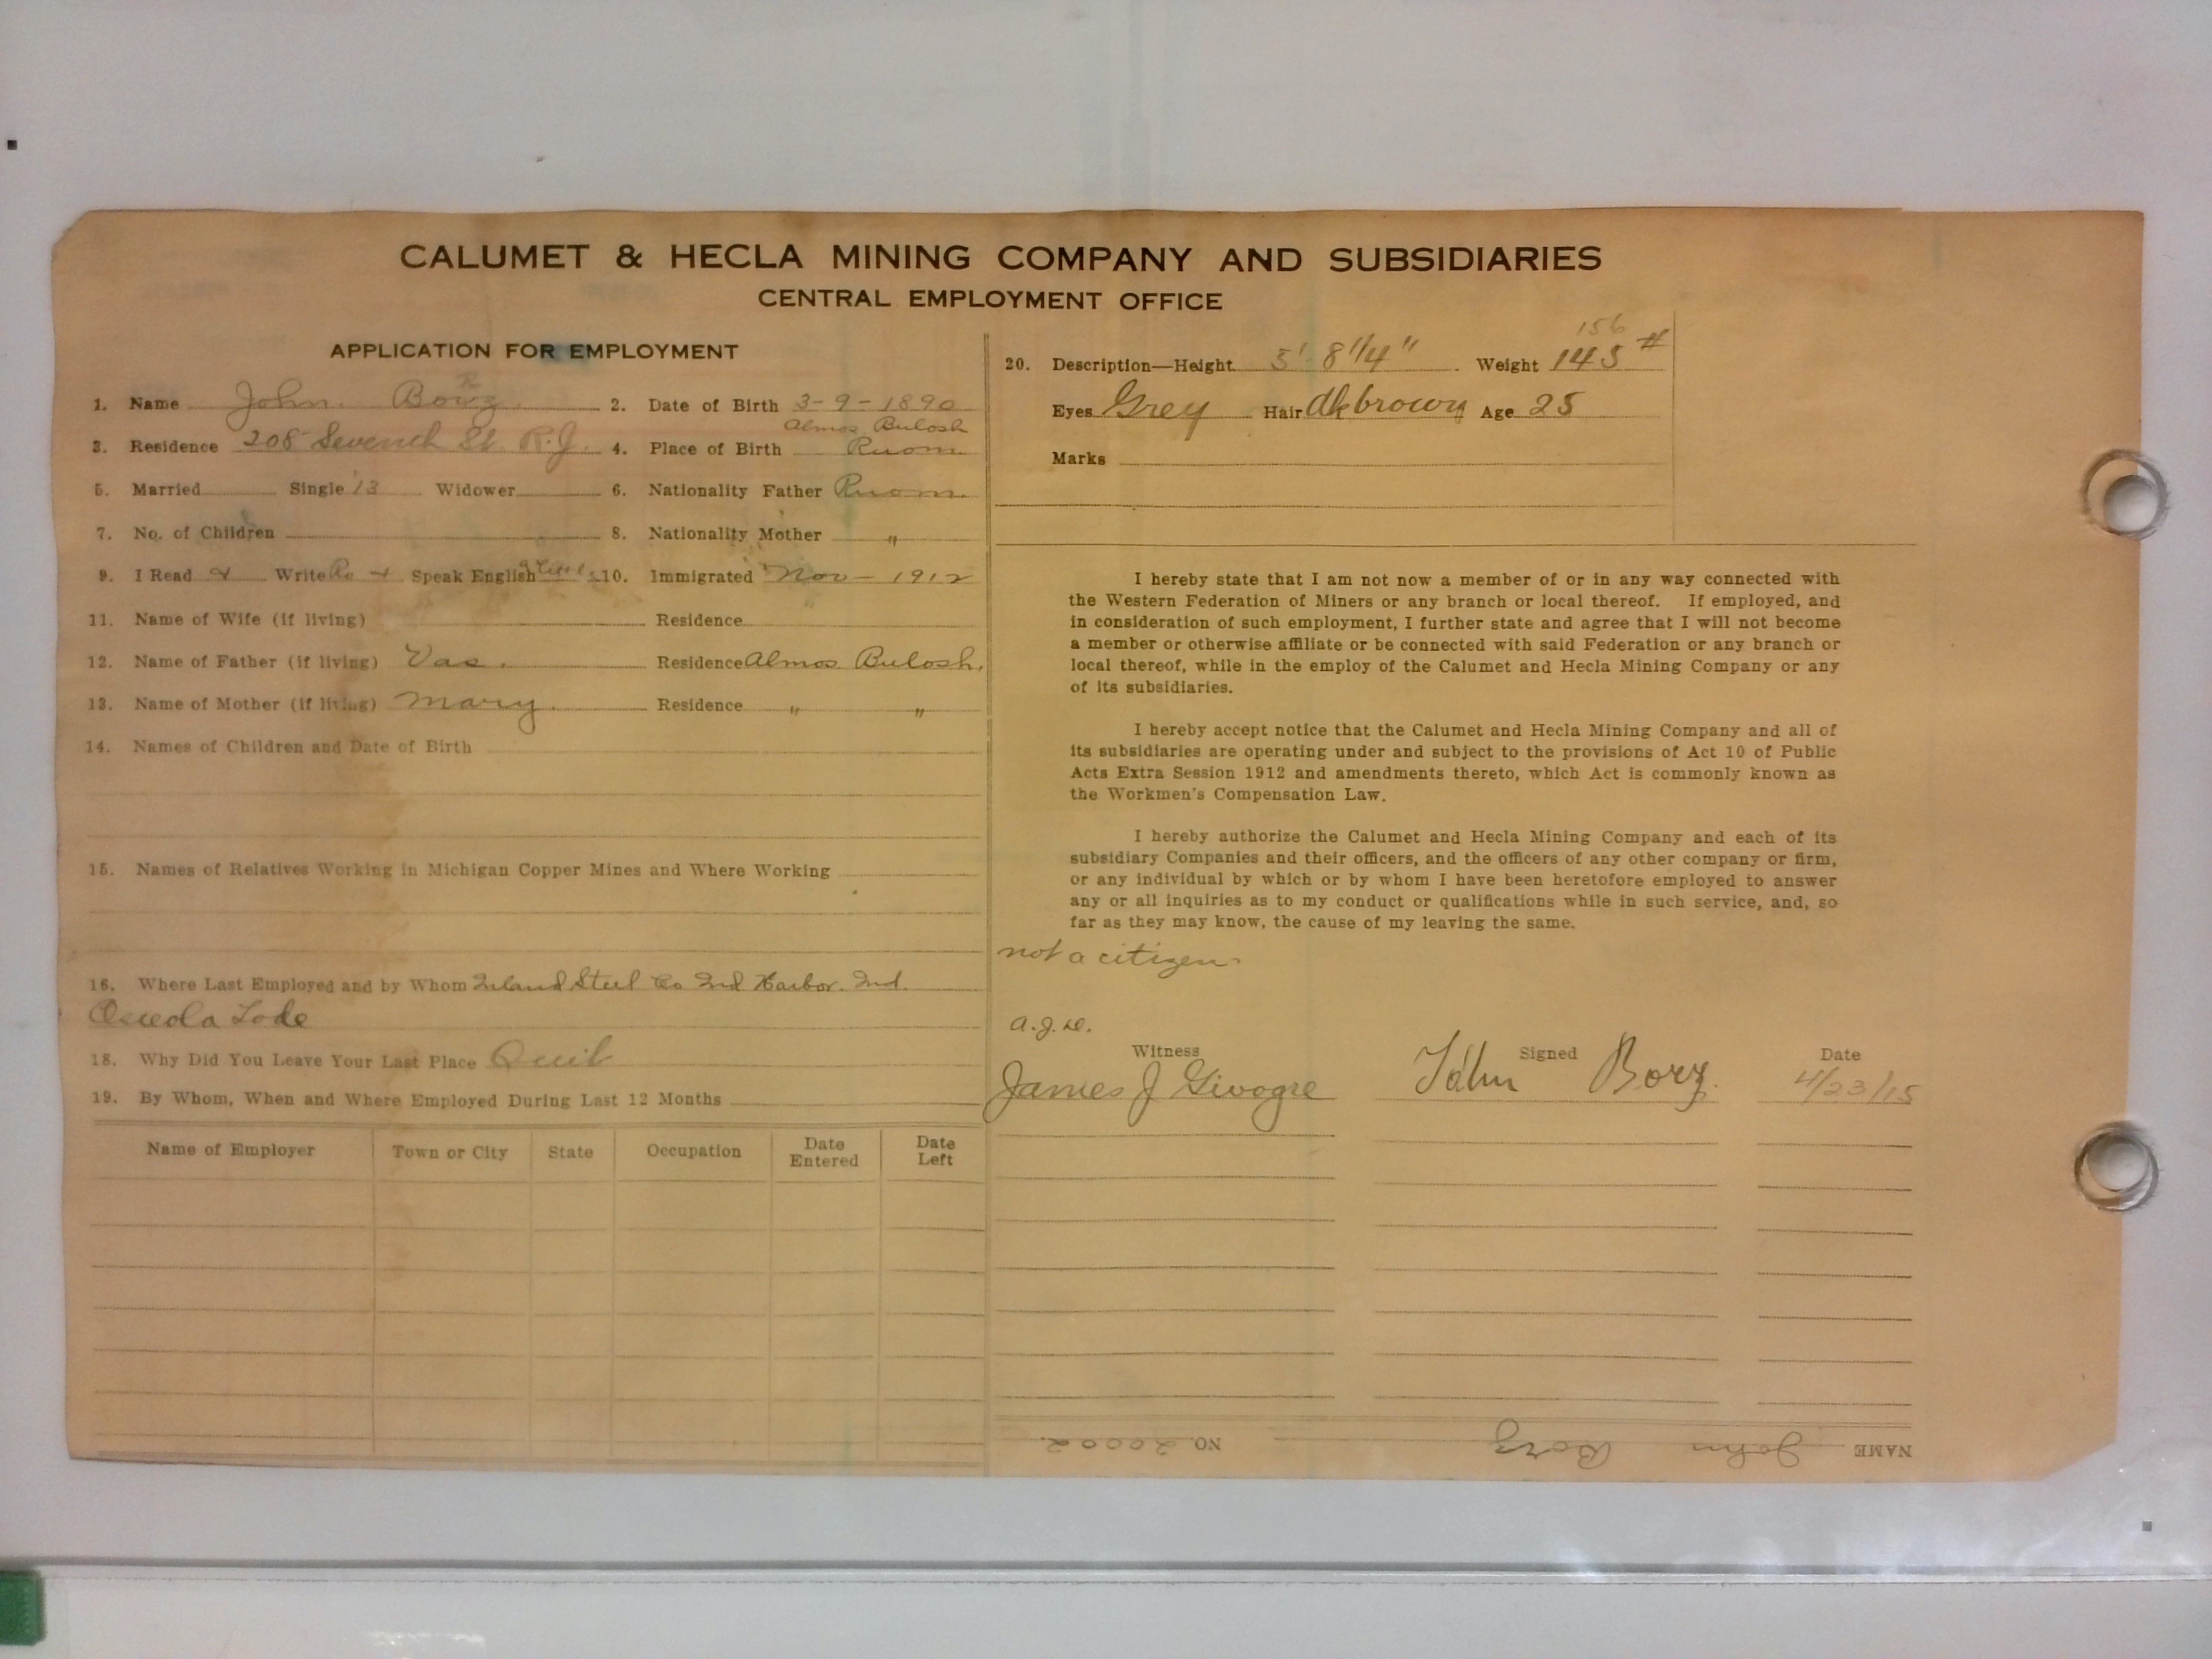 CALUMET & HECLA MINING COMPANY AND SUBSIDIARIES
CENTRAL EMPLOYMENT OFFICE
APPLICATION FOR EMPLOYMENT
1. Name John Borz 2. Date of Birth 3-9-1890
Almos Bulosh
3. Residence 208 Seventh St. R.J. 4. Place of Birth Ruom
5. Married Single 13 Widower 6. Nationality Father Ruom
7. No. of Children 8. Nationality Mother "
9. I Read Write Ro Speak English 10. Immigrated Nov - 1912
11. Name of Wife (if living) Residence
12. Name of Father (if living) Vas. Residence Almos Bulosh.
13. Name of Mother (if living) Mary. Residence " "
14. Names of Children and Date of Birth
15. Names of Relatives Working in Michigan Copper Mines and Where Working
16. Where Last Employed and by Whom Inland Steel Co Ind Harbor. Ind.
Osceola Lode
18. Why Did You Leave Your Last Place Quit
19. By Whom, When and Where Employed During Last 12 Months
Name of Employer Town or City State Occupation Date Entered Date Left
156
20. Description—Height 5' 8 1/4" Weight 145 #
Eyes Grey Hair dk brown Age 25
Marks
I hereby state that I am not now a member of or in any way connected with
the Western Federation of Miners or any branch or local thereof. If employed, and
in consideration of such employment, I further state and agree that I will not become
a member or otherwise affiliate or be connected with said Federation or any branch or
local thereof, while in the employ of the Calumet and Hecla Mining Company or any
of its subsidiaries.
I hereby accept notice that the Calumet and Hecla Mining Company and all of
its subsidiaries are operating under and subject to the provisions of Act 10 of Public
Acts Extra Session 1912 and amendments thereto, which Act is commonly known as
the Workmen's Compensation Law.
I hereby authorize the Calumet and Hecla Mining Company and each of its
subsidiary Companies and their officers, and the officers of any other company or firm,
or any individual by which or by whom I have been heretofore employed to answer
any or all inquiries as to my conduct or qualifications while in such service, and, so
far as they may know, the cause of my leaving the same.
not a citizen
Witness Signed Date
James J Givogre John Borz. 4/23/15
NAME John Borz NO. 20002.